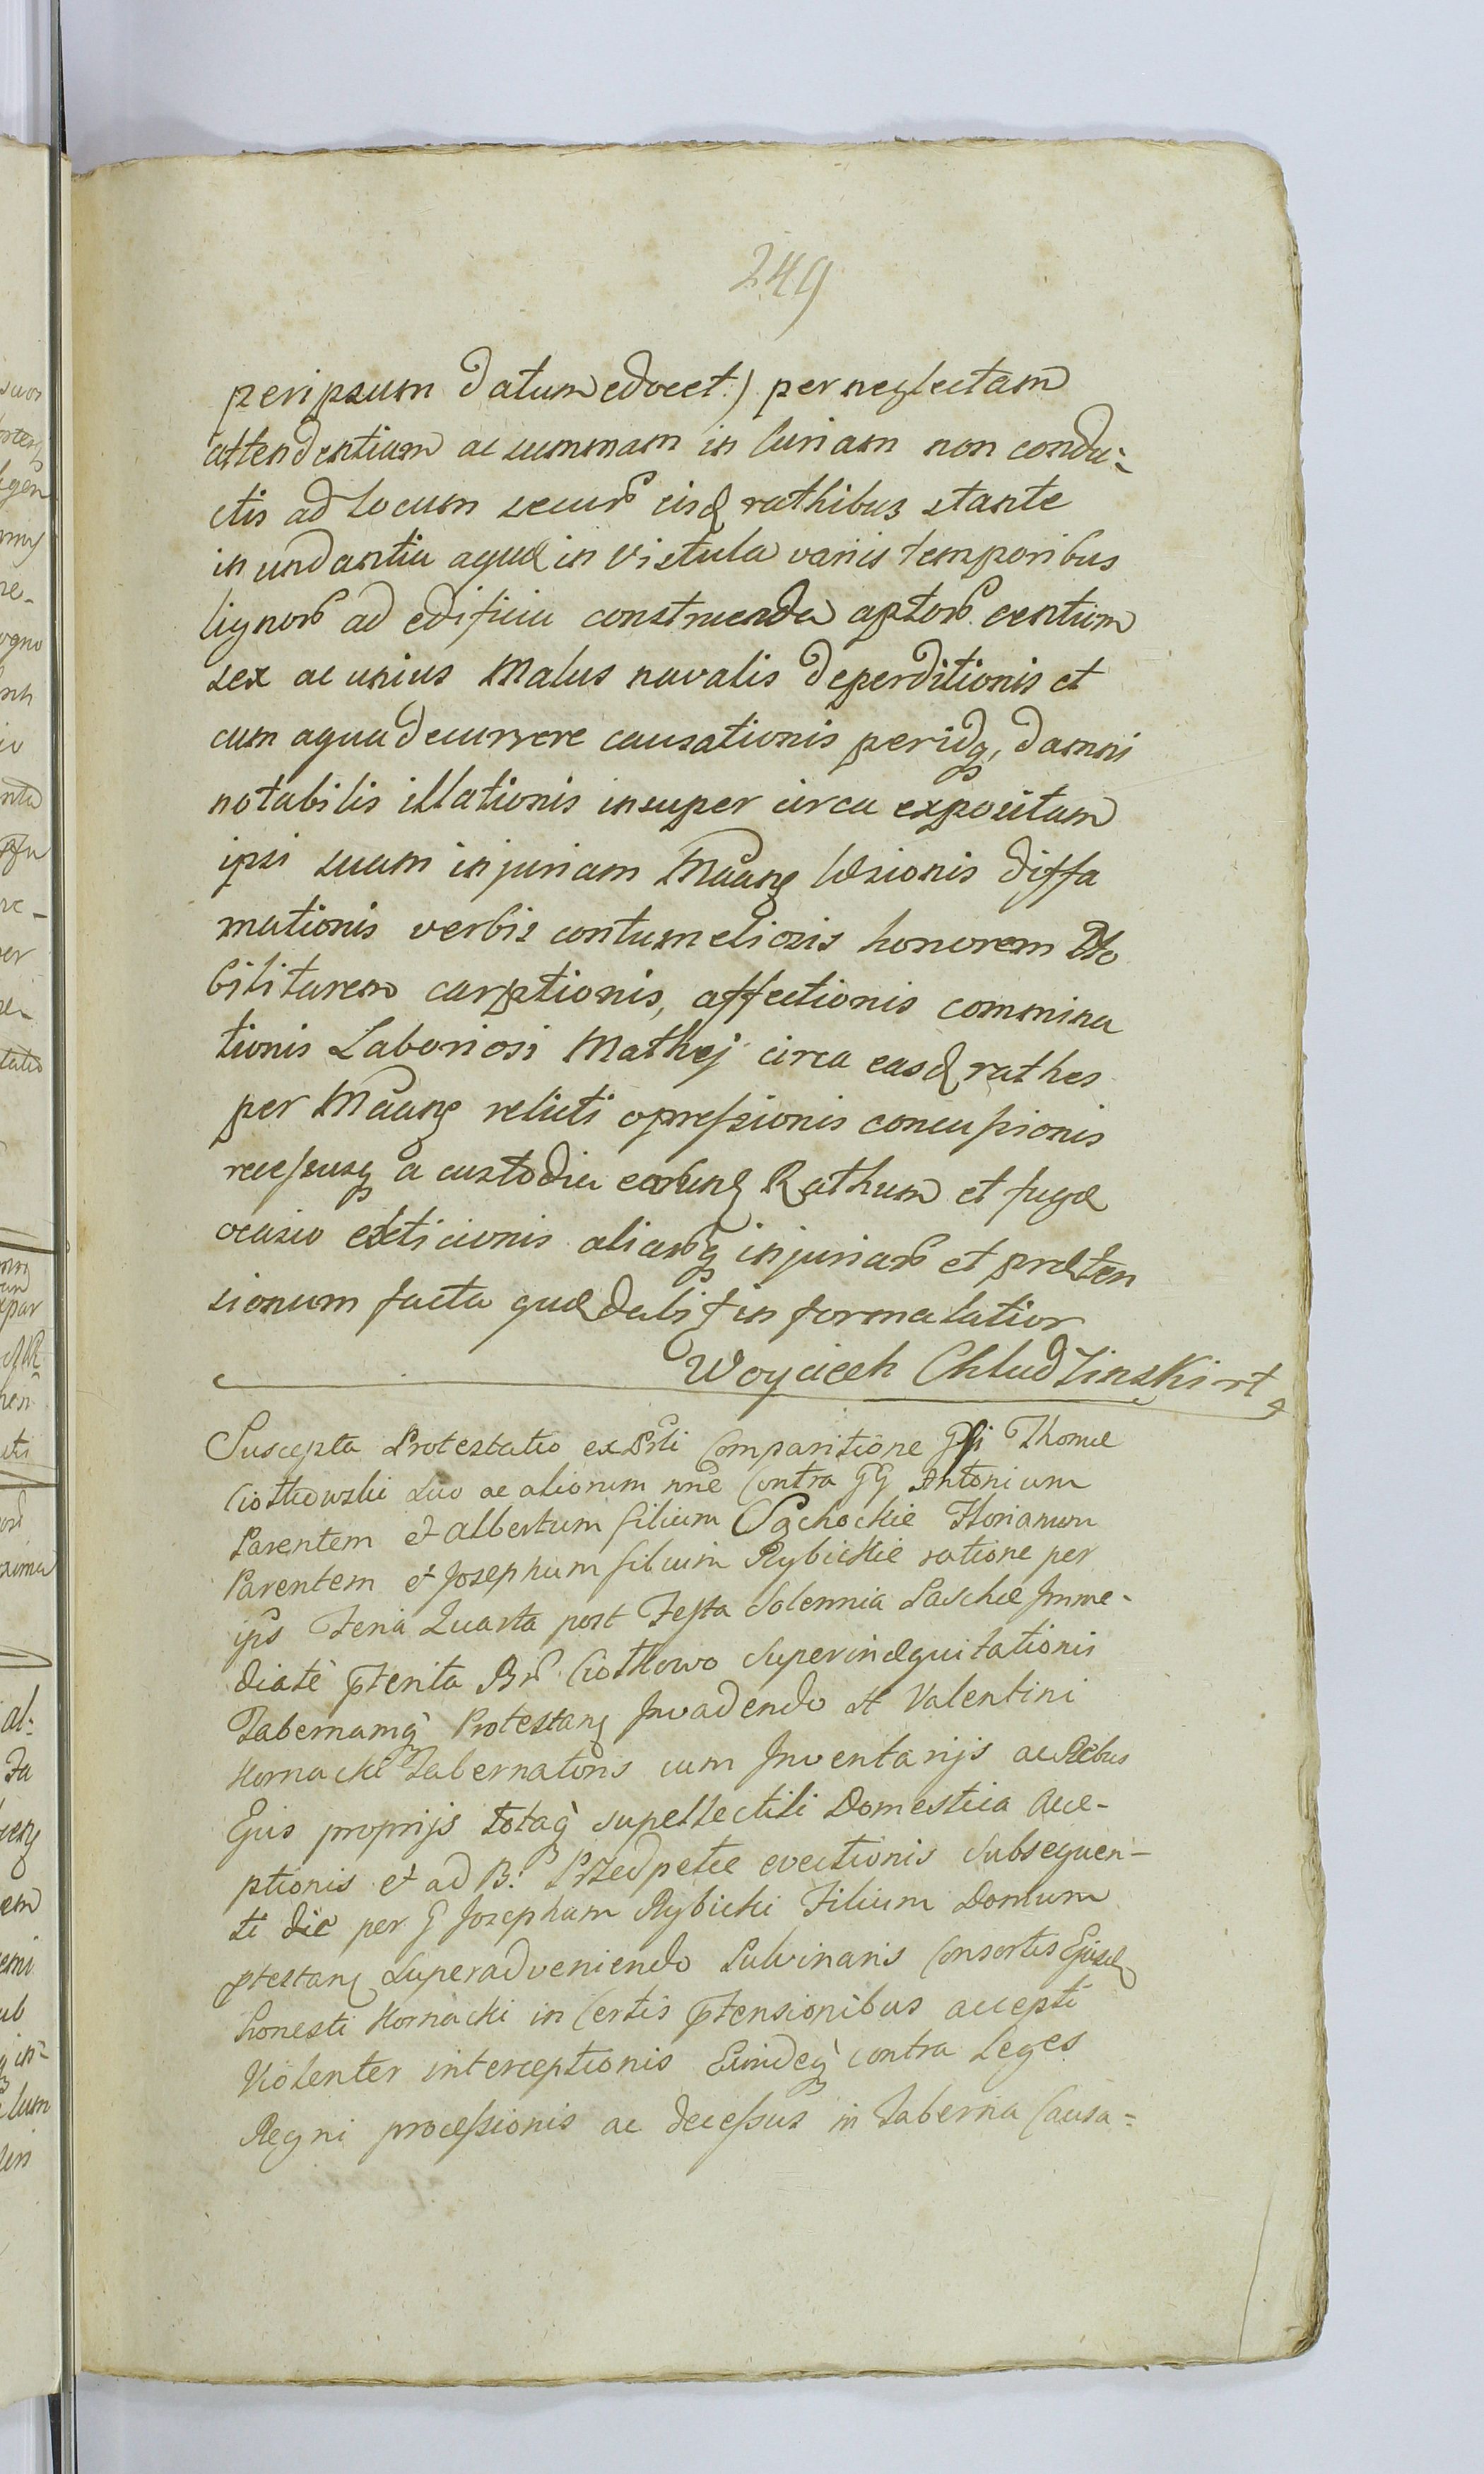 249
per ipsum datum edocet:) per neglectam
attendentiam ac summam in curiam non condu-
ctis ad locum secur eisd rathibus stante
inundantia aquæ in Vistula variis temporibus
lignor ad edificia construenda aptor centum
sex ac unius Malus navalis deperditionis et
cum aqua decurrere causationis peridq, damni
notabilis illationis insuper circa expositam
ipsi suam injuriam Mãang læsionis diffa
mationis verbis contumeliosis honorem No
bilitarem carptionis, affectionis commina
tionis Laboriosi Mathej circa easd rathes
per Mãang relicti opressionis concussionis
recessusq a custodia earund Rathum et fugæ
ocasio exticionis aliarq injuriar et præten
sionum facta quæ dabit in forma latior
Woyciech Chludzinski rt
Suscepta Protestatio ex Prli Comparitione Gsi Thomæ
Ciotkowski suo ac aliorum nne Contra GG Antonium
Parentem et Albertum filium Pachockie Florianum
Parentem et Josephum filium Rybickie ratione per
ips Feria Quarta post Festa Solennia Paschæ Imme-
diatè pterita Br Ciotkowo Superinequitationis
Tabernamq Protestang Invadendo H Valentini
Kornacki Tabernatoris cum Inventarijs ac Rebus
Ejus proprijs totaq supellectili Domestica Acce-
ptionis et ad B. Przedpełce evectionis Subsequen-
ti die per G Josephum Rybicki Filium Domum
ptestang Superadveniendo Pulvinaris Consortis Ejusd
honesti Kornacki in Certis ptensionibus accepti
Violenter interceptionis Eundeq contra Leges
Regni processionis ac decessus in Taberna Causa-